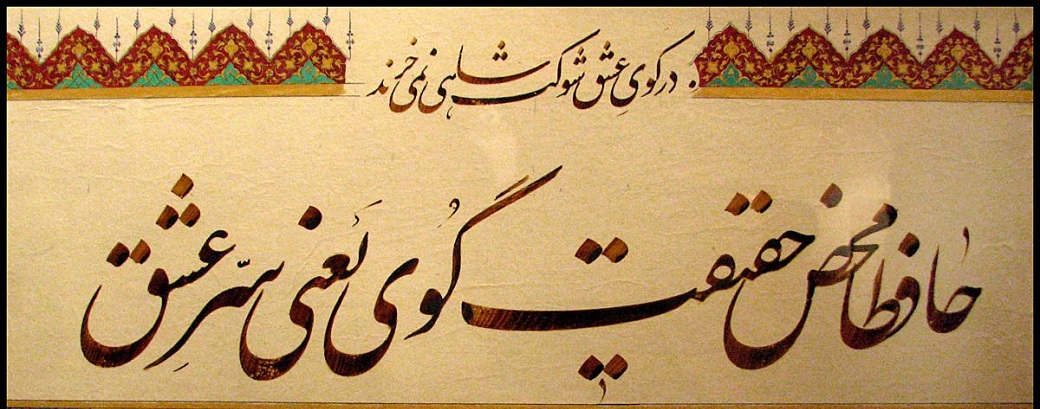 در کویِ عشق شوکت شاهی نمی‌خرند
حافظا محض حقیقت گُوی یَعنی سِرّ عشق